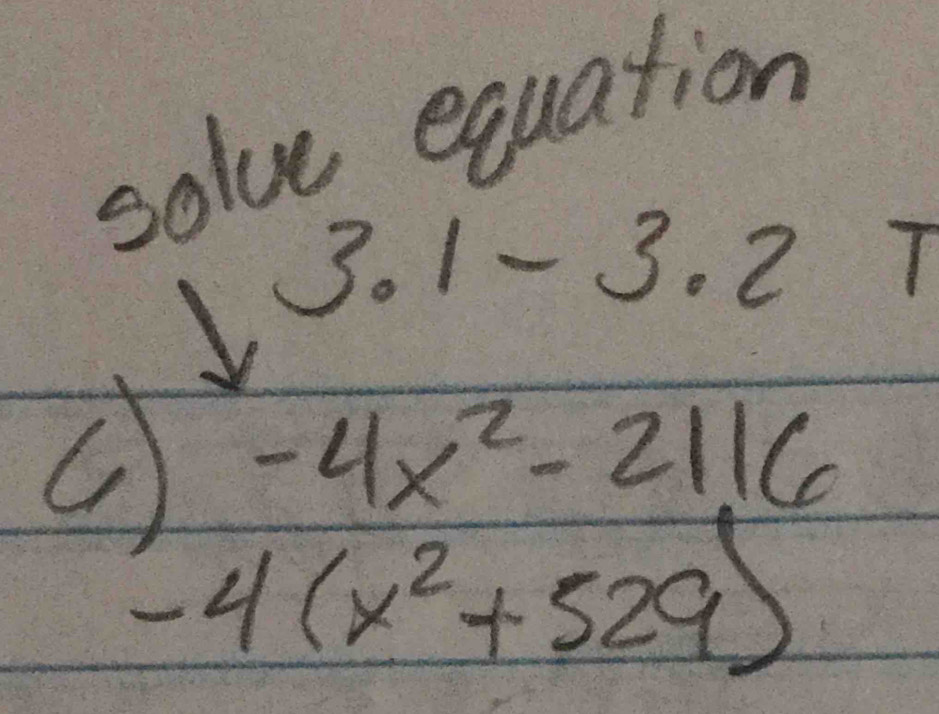 solve equation
3.1 - 3.2 T
6) -4x² - 2116
-4(x² + 529)